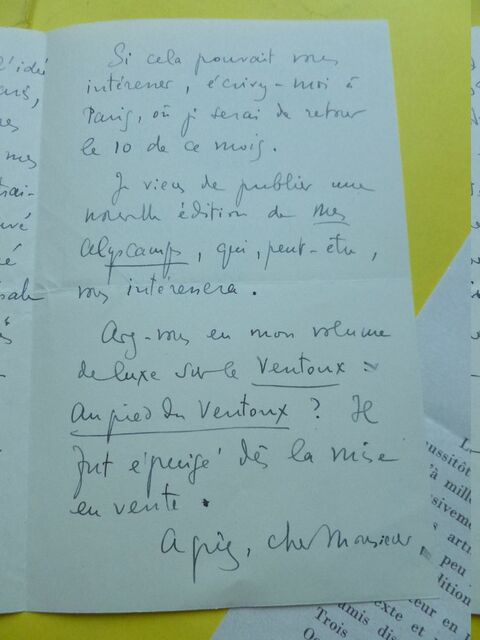 l'idé
mes
Si cela pouvait vous
intéresser, écrivez-moi à
Paris, où je serai de retour
le 10 de ce mois.
Je viens de publier une
nouvelle édition de mes
Alyscamps, qui, peut-être,
vous intéressera.
Avez-vous eu mon volume
de luxe sur le Ventoux :
Au pied du Ventoux ? Il
fut épuisé dès la mise
en vente.
Agréez, cher Monsieur
ussitôt
'à mill
sivemen
arti
peu
dition
eur en
exte et
amis di
Trois